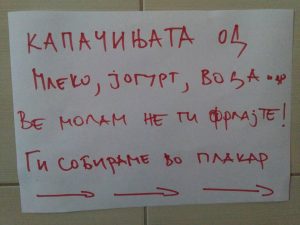 КАПАЧИЊАТА ОД
МЛЕКО, ЈОГУРТ, ВОДА...
ВЕ МОЛАМ НЕ ГИ ФРЛАЈТЕ!
ГИ СОБИРАМЕ ВО ПЛАКАР